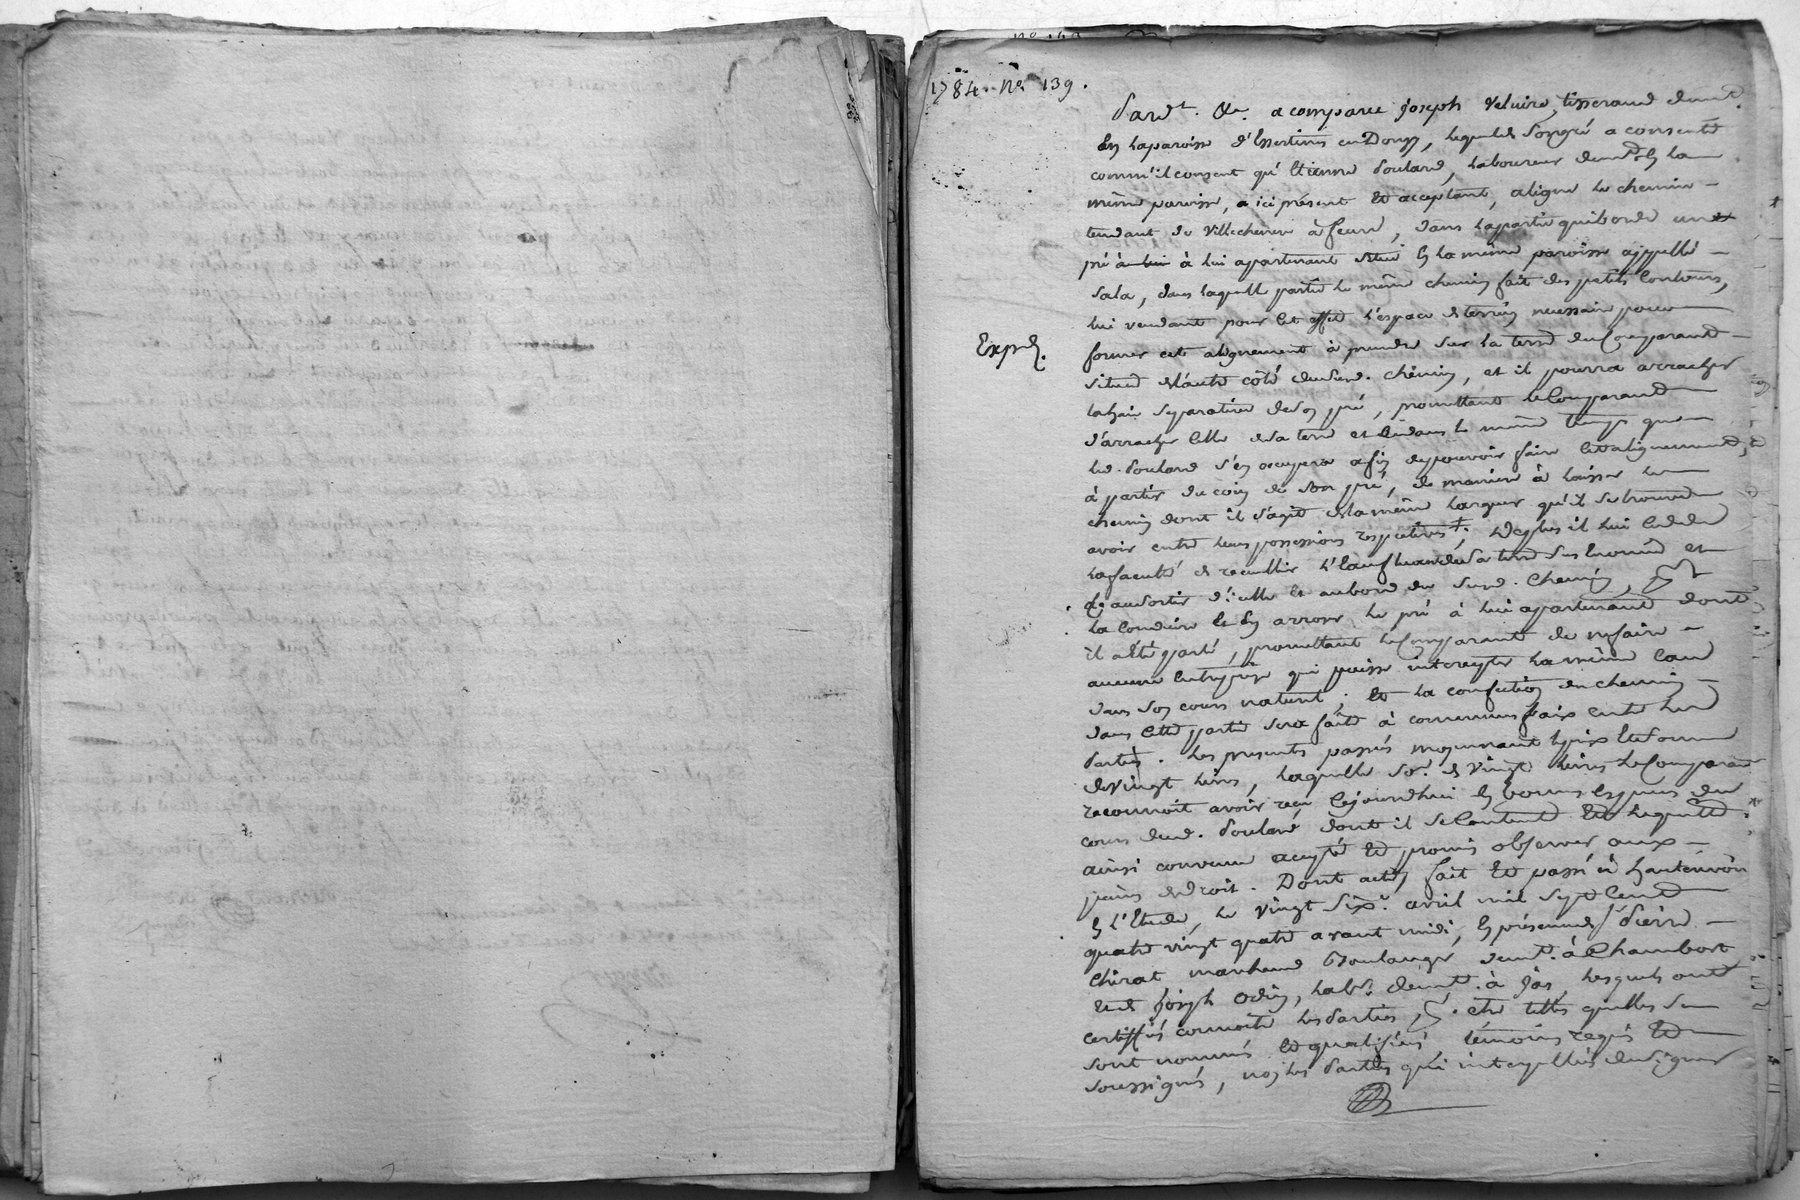 1784. No. 139.
Pard.t &a. a comparu Joseph Veluire, tisserand demt.
en la paroisse d'Essertines en Donzy, lequel de son gré a consenti
comm'il consent qu'Etienne Poulard, laboureur demt. en la
même paroisse, a ici présent et acceptant, aligne le chemin
tendant de Villechenève à feurs, dans la partie qui borde un
pré à lui apartenant situé en la même paroisse appellé
Sala, dans laquelle partie le même chemin fait des petits contours,
lui vendant pour cet effet l'espace de terrein necessaire pour
Expéd.
former cet alignement à prendre sur la terre du Comparant
située de l'autre côté dud. chemin, et il pourra arracher
la haie séparative de son pré, promettant le Comparant
d'arracher celle de sa terre et dans le même temps que
led. Poulard s'en occupera afin de pouvoir faire cet alignement,
à partir du coin de son pré, de manière à laisser le
chemin dont il s'agit de la même largeur qu'il se trouve
avoir entre leurs possessions respectives; de plus il lui cede
la faculté de recueillir l'eau de sa terre et
au sortir d'icelle et au bord du chemin,
la conduire et en arroser le pré à lui apartenant dont
il a été parlé, promettant le Comparant de ne faire
aucune entreprise qui puisse intercepter la même eau
dans son cours naturel; et la confection du chemin
dans cette partie sera faite à communs fraix entre les
Parties. Les presentes passées moyennant le prix et somme
de vingt livres, laquelle so.e de vingt livres le Comparant
reconnoit avoir reçu cejourd'hui en bonnes espèces du
cours dud. Poulard dont il se Contente et l'en quitte.
ainsi convenu accepté et promis observer aux
peines de droit. Dont acte, fait et passé à
en l'Etude, le vingt six.e avril mil sept cent
quatre vingt quatre avant midi, en présence de Sr Pierre
Chirat, marchand Boulanger demt. à Chambost
et de Joseph Odin, labr. demt. à Jas, lesquels ont
certiffiés connoitre les Parties, être telles quelles se
sont nommées et qualifiées témoins requis et
soussignés, non les Parties qui interpellées de signer